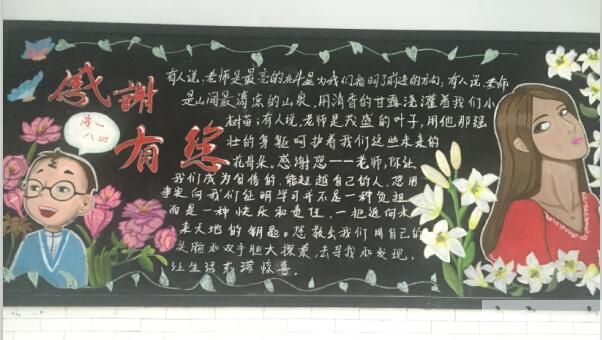 感谢
有您
高一
八班
有人说,老师是最亮的北斗星为我们指明了前进的方向,有人说,老师
是山间最清凉的山泉,用清香的甘露浇灌着我们小
树苗;有人说,老师是茂盛的叶子,用他那强
壮的身躯呵护着我们这些未来的
花骨朵。感谢您——老师,你让
我们成为自信的,能超越自己的人,您用
事实向我们证明学习并不是一种负担
而是一种快乐和责任,一把迈向未
来天地的钥匙。您教会我们用自己的
头脑和双手胆大探索,去寻找和发现,
让生活充满惊喜。